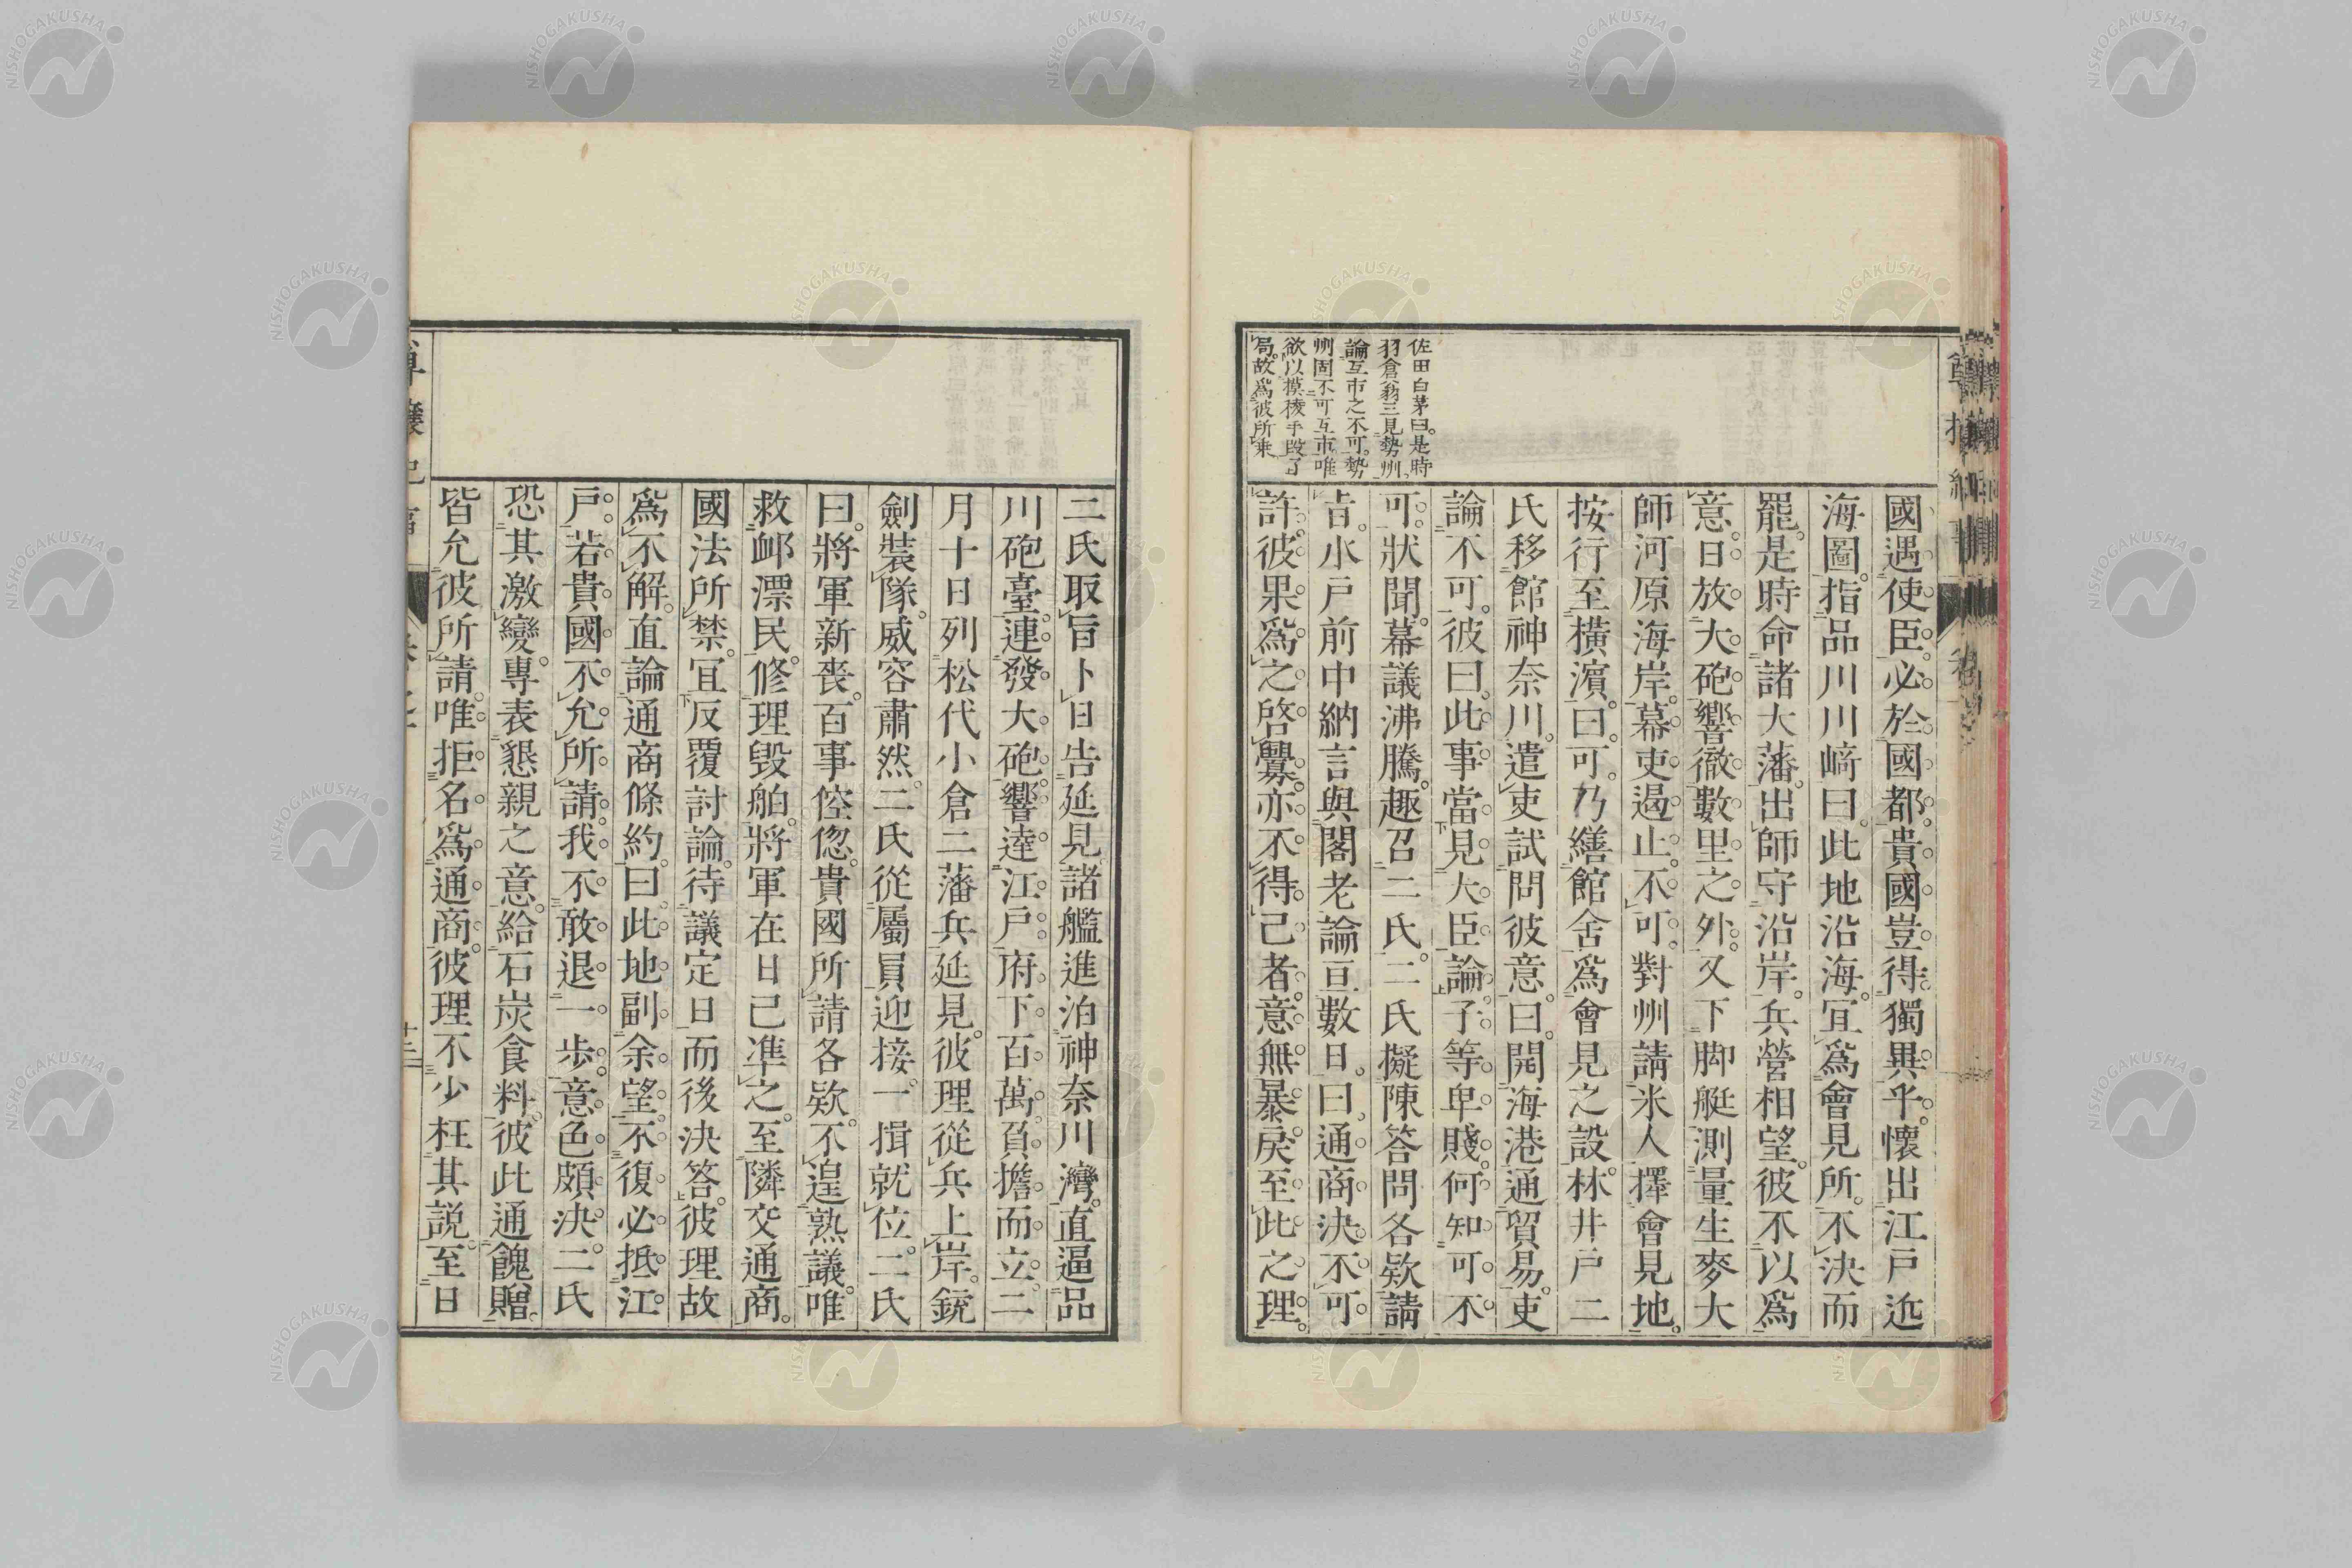 國遇使臣。必於國都。貴國豈得獨異乎。懷出江戶近
海圖。指品川川﨑曰。此地沿海。宜爲會見所。不決而
罷。是時命諸大藩。出師守沿岸。兵營相望。彼不以爲
意。日放大砲。響徹數里之外。又下脚艇測量生麥大
師河原海岸。幕吏遏止。不可。對州請米人擇會見地。
按行至橫濱。曰。可。乃繕館舍爲會見之設。林井戶二
氏移館神奈川。遣吏試問彼意。曰。開海港通貿易。吏
論不可。彼曰。此事當見大臣論。子等卑賤。何知可不
可。狀聞。幕議沸騰。趣召二氏。二氏擬陳答問各欵請
旨。水戶前中納言與閣老論亘數日。曰。通商決不可
許。彼果爲之啓釁。亦不得已者。意無暴戾至此之理。
佐田白茅曰。是時
羽倉翁三見勢州、
論互市之不可。勢
州固不可互市唯
欲以摸稜手段了
局。故爲彼所乘
二氏取旨卜日告延見諸艦進泊神奈川灣。直逼品
川砲臺。連發大砲。響達江戶。府下百萬負擔而立。二
月十日列松代小倉二藩兵延見。彼理從兵上岸。銃
劍裝隊。威容肅然。二氏從屬員迎接。一揖就位。二氏
曰。將軍新喪。百事倥偬。貴國所請各欵。不遑熟議。唯
救邺漂民。修理毀舶。將軍在日已準之。至隣交通商。
國法所禁。宜反覆討論。待議定日而後決答。彼理故
爲不解。直論通商條約。曰。此地副余望。不復必抵江
戶。若貴國不允所請。我不敢退一步。意色頗決。二氏
恐其激變。專表懇親之意。給石炭食料。彼此通餽贈。
皆允彼所請。唯拒名爲通商。彼理不少枉其說。至日